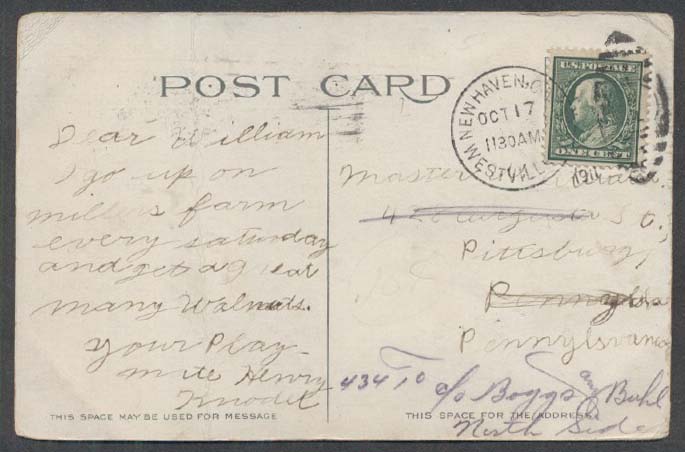 POST CARD
Dear William
I go up on
millers farm
every saturday
and get a great
many Walnuts.
Your Play-
mate Henry
THIS SPACE MAY BE USED FOR MESSAGE
NEW HAVEN, C
OCT 17
1130 AM
WESTVILL
1911
U.S. POSTAGE
ONE CENT
Master
St.,
Pittsburg,
Pennylva
Pennylsvania
434 10 c/o Boggs and Buhl
North Side
THIS SPACE FOR THE ADDRESS